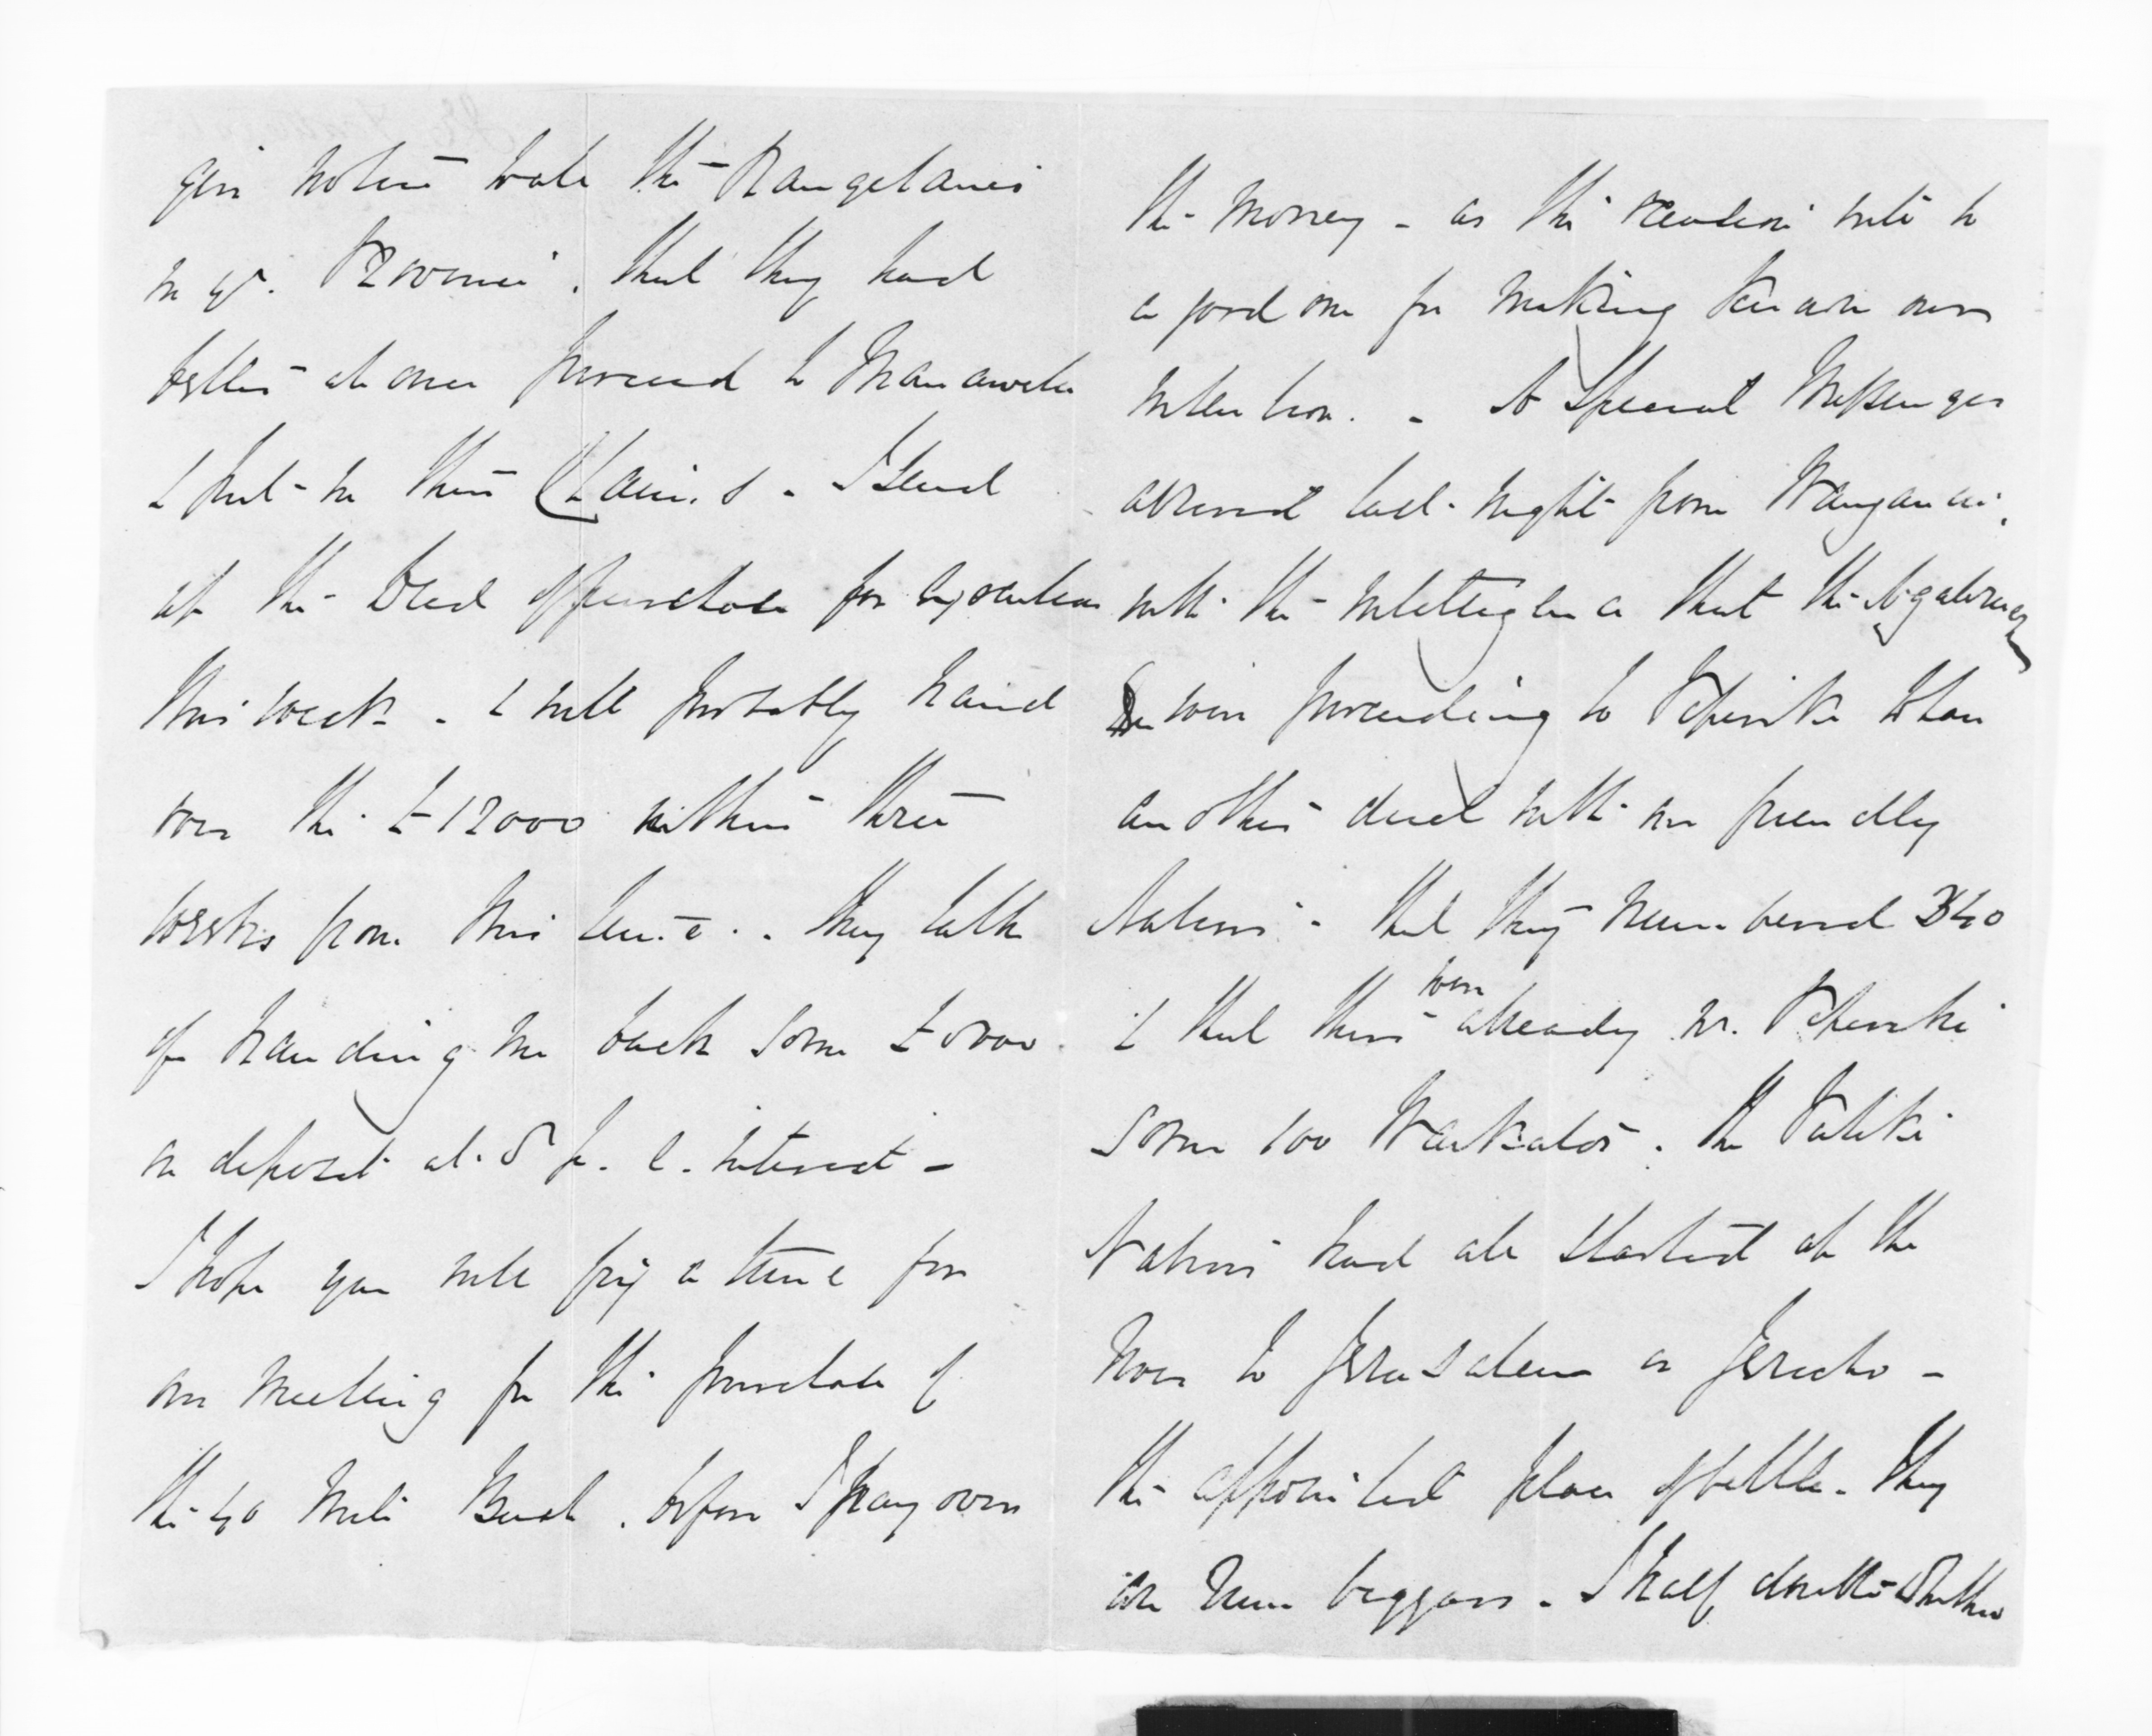 give notice to all the Rangetanes
in yr. Province, that they had
better at once proceed to Manawatu
& put in their Claims. I send
up the Deed of purchase for signature
this week - & will probably hand
over the £12000 within three
weeks from this time. They talk
of handing me back some £5000
on deposit at 5 p. c. interest -
I hope you will fix a time for
our meeting for the purchase of
the 40 Mile Bush, before I pay over
the money - as the occasion will be
a good one for making known our
intention. - A Special Messenger
arrived last night from Wanganui,
with the intelligence that the Ngatiruanui
were proceeding to Pipiriki to have
another duel with our friendly
Natives - that they numbered 340
& that there were already in Pipiriki
some 100 Waikatos. The Patiki
Natives had all started up the
River to Jerusalem or Jericho -
the appointed place of battle. They
are rum beggars. I half doubt whether